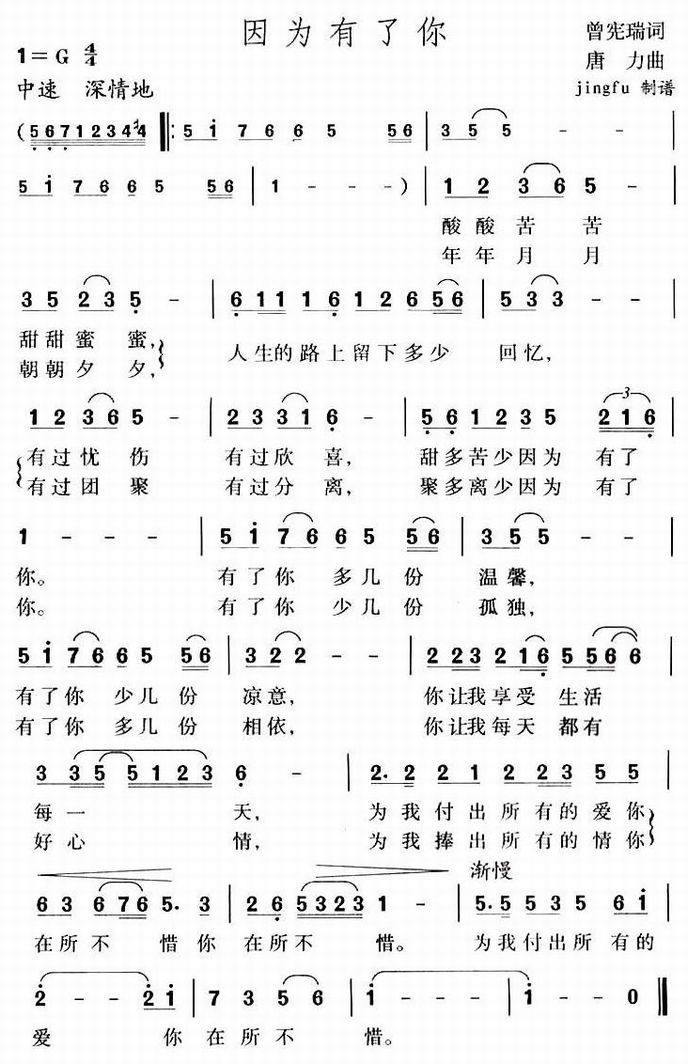 因为有了你
曾宪瑞词
1=G 4/4
唐 力曲
中速 深情地
jingfu 制谱
(5 6 7 1 2 3 4 #4 ‖: 5 i 7 6 6 5 5 6 | 3 5 5 - - |
5 i 7 6 6 5 5 6 | 1 - - - ) | 1 2 3 6 5 - |
酸酸苦 苦
年年月 月
3 5 2 3 5 - | 6 1 1 1 6 1 2 6 5 6 | 5 3 3 - - |
甜甜蜜 蜜, 人生的路上留下多少 回忆,
朝朝夕 夕,
1 2 3 6 5 - | 2 3 3 1 6 - | 5 6 1 2 3 5 2 1 6 |
有过忧 伤 有过欣 喜, 甜多苦少因为 有了
有过团 聚 有过分 离, 聚多离少因为 有了
1 - - - | 5 i 7 6 6 5 5 6 | 3 5 5 - - |
你。 有了你 多几 份 温馨,
你。 有了你 少几 份 孤独,
5 i 7 6 6 5 5 6 | 3 2 2 - - | 2 2 3 2 1 6 5 5 6 6 |
有了你 少几份 凉意, 你让我享受 生活
有了你 多几份 相依, 你让我每天 都有
3 3 5 5 1 2 3 6 - | 2. 2 2 1 2 2 3 5 5 |
每一 天, 为我付出所有的爱你
好心 情, 为我捧出所有的情你
渐慢
6 3 6 7 6 5. 3 | 2 6 5 3 2 3 1 - | 5. 5 5 3 5 6 i |
在所不 惜你 在所不 惜。 为我付出所 有的
2 - - 2 i | 7 3 5 6 | i - - - | i - - 0 ‖
爱 你在所不 惜。